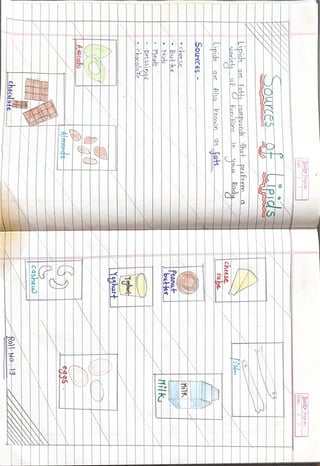 Sources of Lipids
Lipids are fatty compounds that perform a
variety of functions in your body
Lipids are Also known as fats
Sources -
• cheese
• Butter
• Nuts
• Meats
• Dressings
• chocolate
Avocado
Almonds
chocolate
cheese
cube
fish
Peanut
butter
MILK
Milk
Yoghurt
Yoghurt
cashew
eggs.
Roll No. - 19